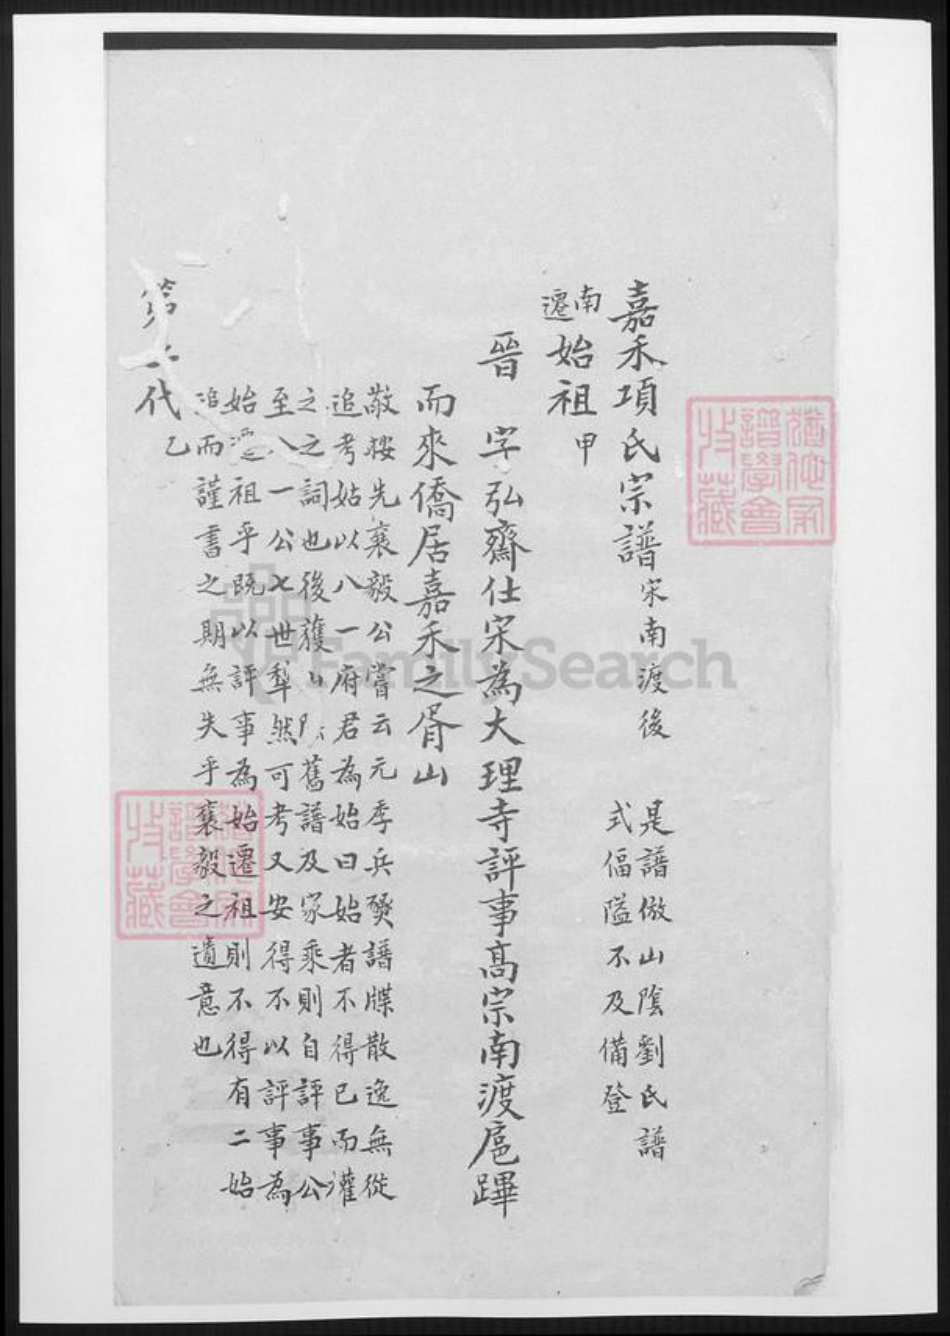 嘉禾項氏宗譜宋南渡後
是譜倣山陰劉氏譜
式偪隘不及備登
南遷始祖甲
晉 字弘齋仕宋為大理寺評事高宗南渡扈蹕
而來僑居嘉禾之胥山
敬按先襄毅公嘗云元季兵燹譜牒散逸無從
追考姑以八一府君為始曰始者不得已而權
之之詞也後獲山 舊譜及家乘則自評事公
至八一公七世犁然可考又安得不以評事為
始遷祖乎既以評事為始遷祖則不得有二始
追而謹書之期無失乎襄毅之遺意也
第一代乙
譜學會
收藏
譜學會
收藏
FamilySearch